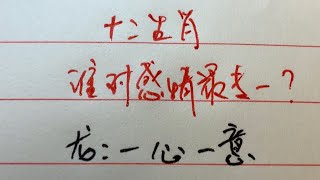 十二生肖
谁对感情最专一？
龙：一心一意